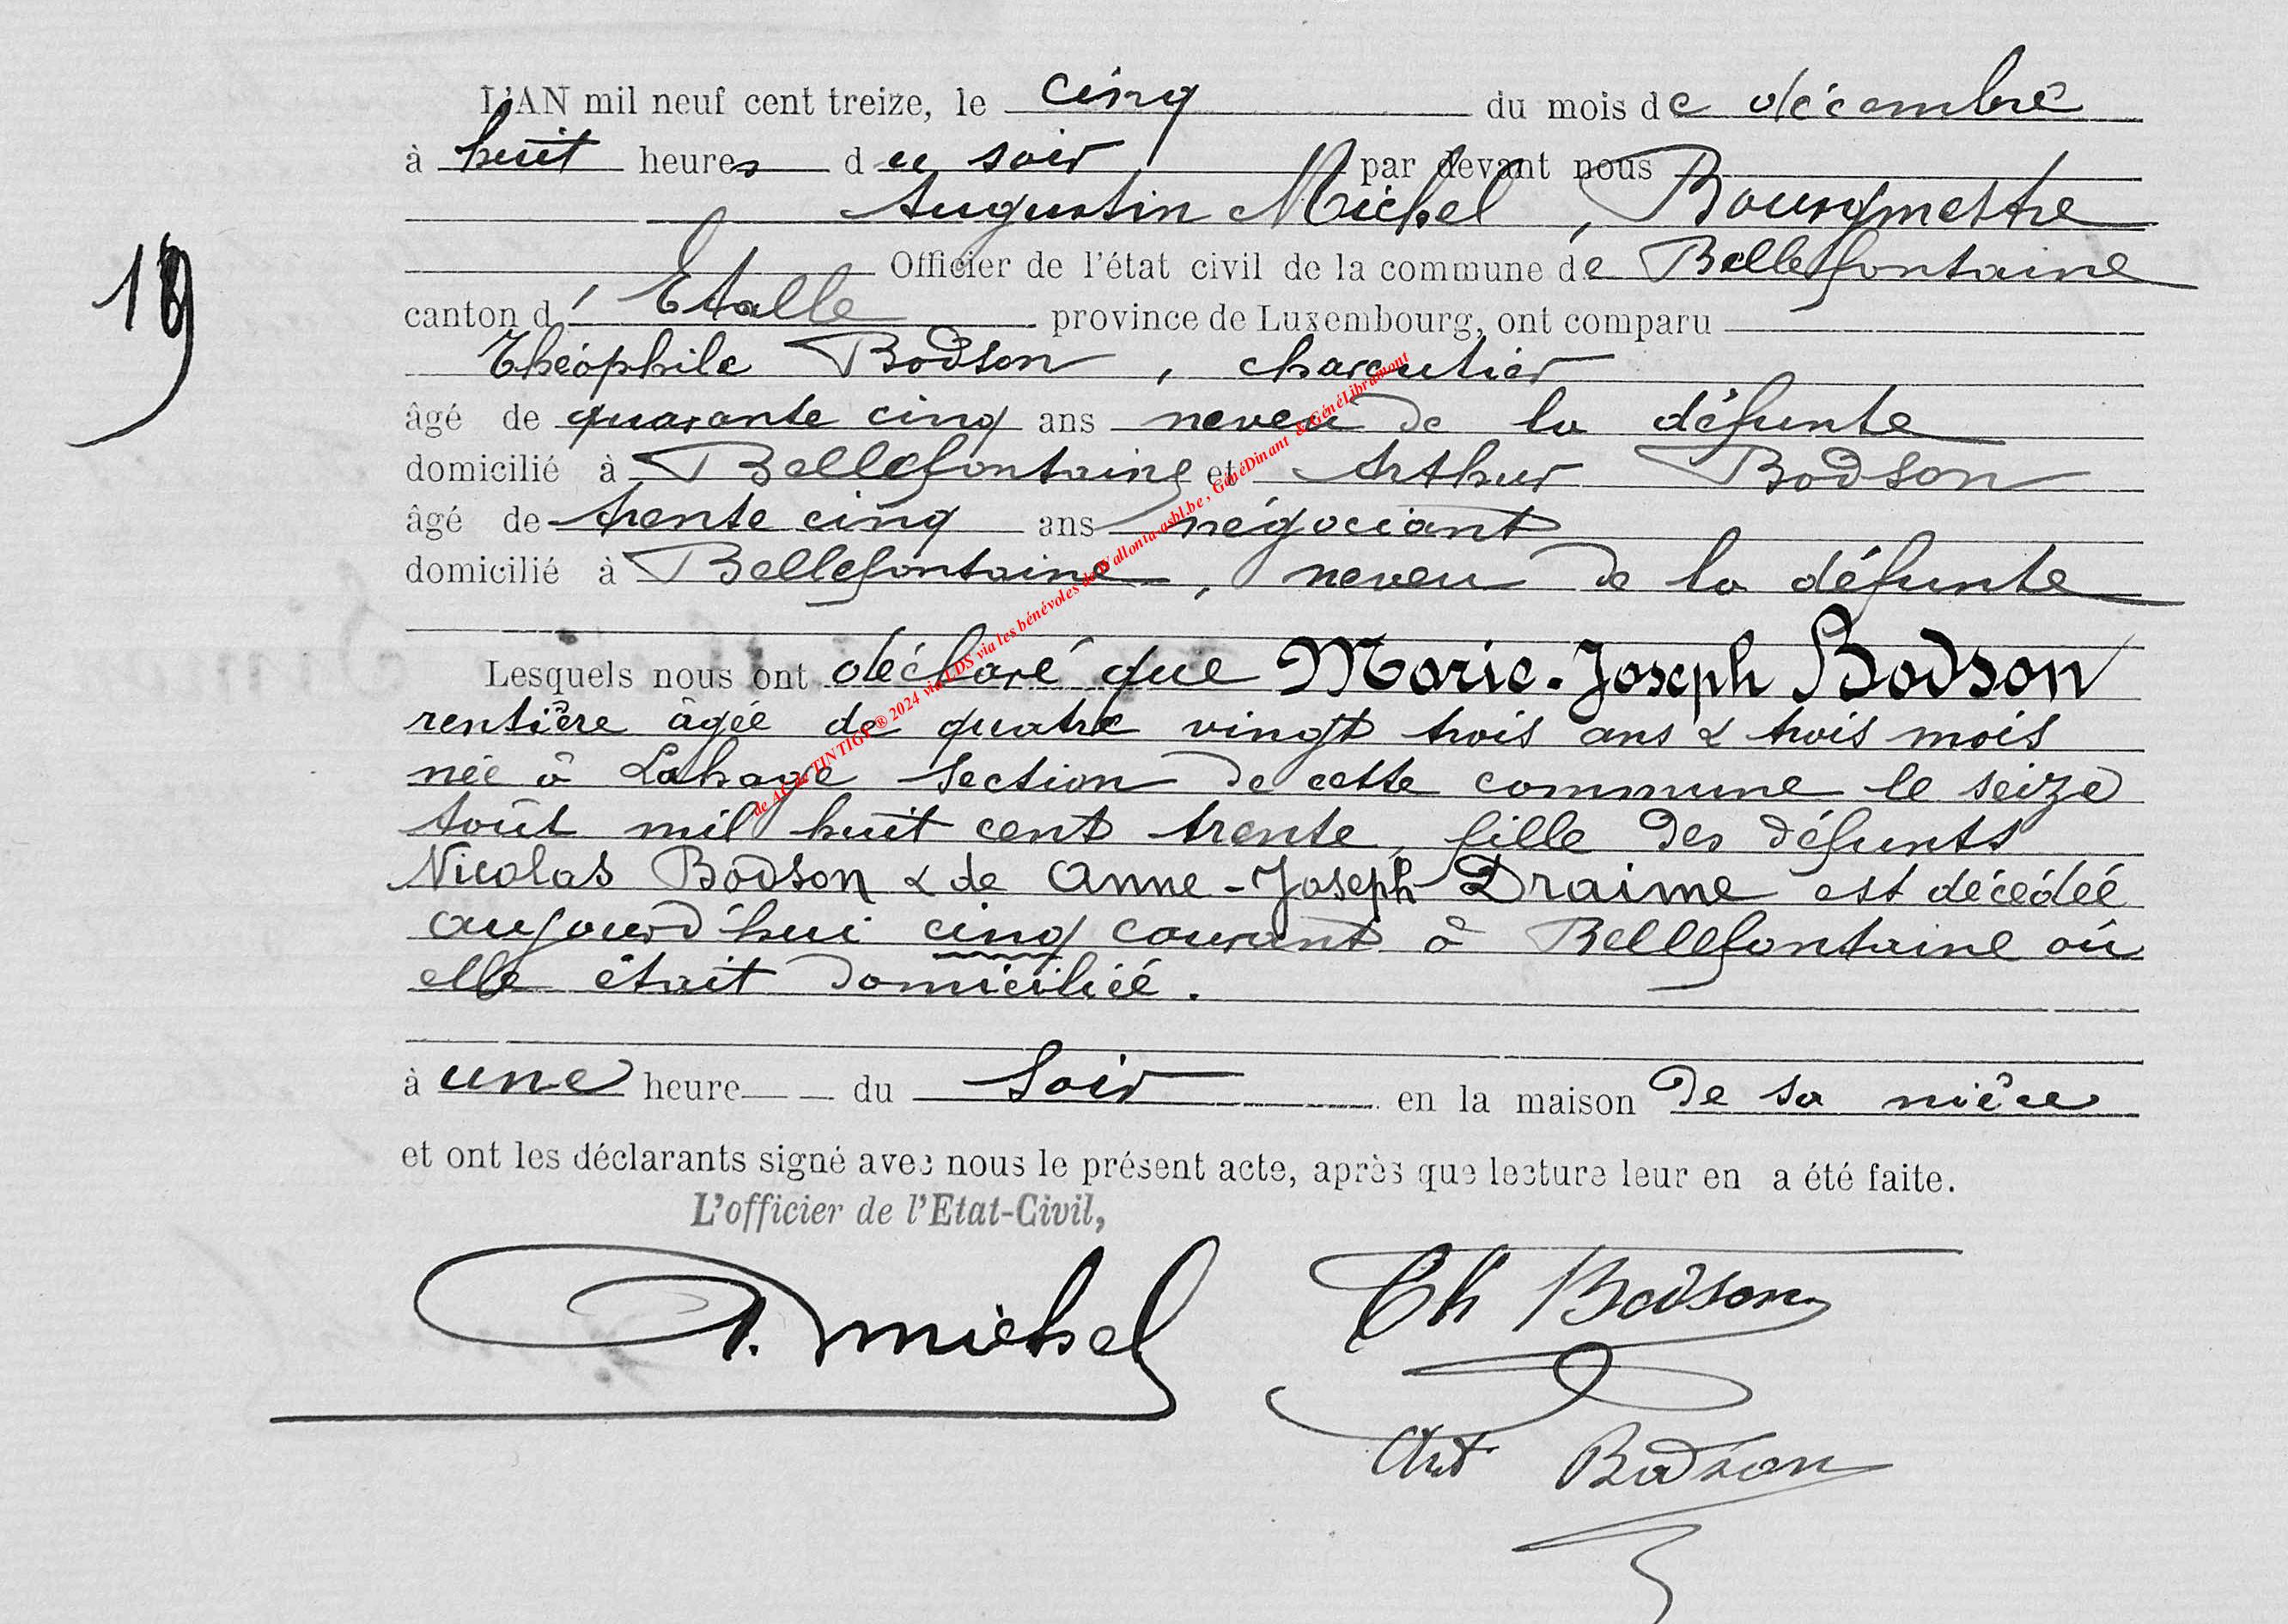 L'AN mil neuf cent treize, le cinq du mois de décembre
à huit heures du soir par devant nous
Augustin Michel, Bourgmestre
Officier de l'état civil de la commune de Bellefontaine
19
canton d'Etalle province de Luxembourg, ont comparu
Théophile Bodson, charcutier
âgé de quarante cinq ans neveu de la défunte
domicilié à Bellefontaine et Arthur Bodson
âgé de trente cinq ans négociant
domicilié à Bellefontaine, neveu de la défunte
Lesquels nous ont déclaré que Marie-Joseph Bodson
rentière âgée de quatre vingt trois ans & trois mois
née à Lahage section de cette commune le seize
Août mil huit cent trente, fille des défunts
Nicolas Bodson & de Anne-Joseph Draime est décédée
aujourd'hui cinq courant à Bellefontaine où
elle était domiciliée.
à une heure du soir en la maison de sa nièce
et ont les déclarants signé avec nous le présent acte, après que lecture leur en a été faite.
L'officier de l'Etat-Civil,
A. Michel
Th Bodson
Art Bodson
de AC de TINTIGY ® 2024 via LDS via les bénévoles de Wallonia-asbl.be, GénéDinant & GénéLibramont